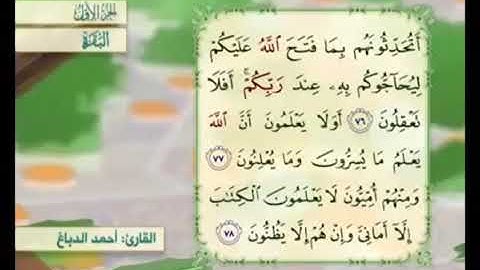 الجزء الأول
البقرة
أَتُحَدِّثُونَهُم بِمَا فَتَحَ ٱللَّهُ عَلَيْكُمْ
لِيُحَآجُّوكُم بِهِۦ عِندَ رَبِّكُمْ ۚ أَفَلَا
تَعْقِلُونَ ٧٦ أَوَلَا يَعْلَمُونَ أَنَّ ٱللَّهَ
يَعْلَمُ مَا يُسِرُّونَ وَمَا يُعْلِنُونَ ٧٧
وَمِنْهُمْ أُمِّيُّونَ لَا يَعْلَمُونَ ٱلْكِتَٰبَ
إِلَّآ أَمَانِىَّ وَإِنْ هُمْ إِلَّا يَظُنُّونَ ٧٨
القارئ: أحمد الدباغ